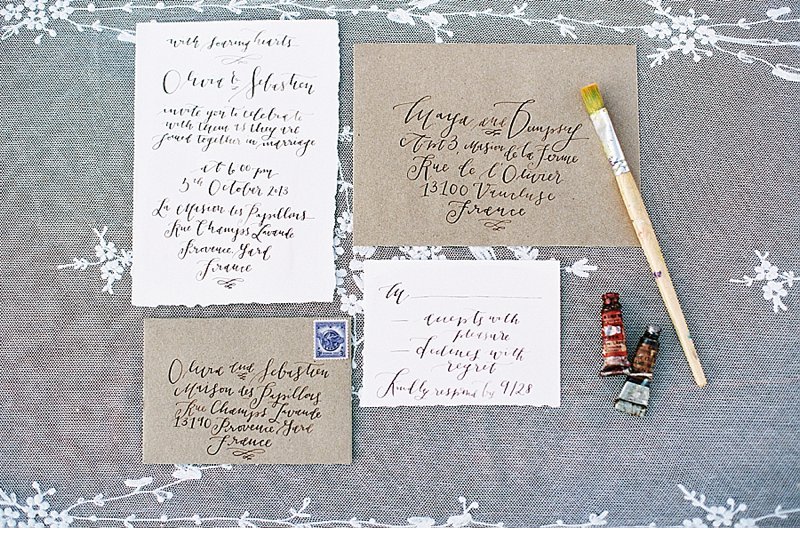 with soaring hearts
Olivia & Sebastien
invite you to celebrate
with them as they are
joined together in marriage
at 6:00 pm
5th October 2013
La Maison des Papillons
Rue Champs Lavande
Provence, Gard
France
Maya and Dempsy
Apt 3, Maison de la Ferme
Rue de l'Olivier
13100 Vaucluse
France
Olivia and Sebastien
Maison des Papillons
Rue Champs Lavande
13140 Provence, Gard
France
M
accepts with
pleasure
declines with
regret
Kindly respond by 9/28